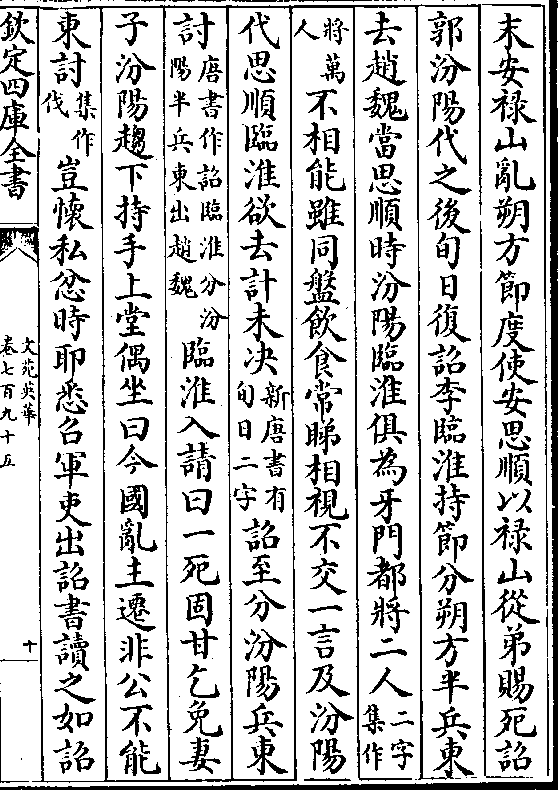 末安禄山亂朔方節度使安思順以禄山從弟賜死詔
郭汾陽代之後旬日復詔李臨淮持節分朔方半兵東
去趙魏當思順時汾陽臨淮俱為牙門都將二人二字集作
將萬人不相能雖同盤飲食常睇相視不交一言及汾陽
代思順臨淮欲去計未决新唐書有旬日二字詔至分汾陽兵東
討唐書作詔臨淮分汾陽半兵東出趙魏臨淮入請曰一死固甘乞免妻
子汾陽趨下持手上堂偶坐曰今國亂主遷非公不能
東討集作伐豈懷私忿時耶悉召軍吏出詔書讀之如詔
欽定四庫全書
文苑英華
卷七百九十五
十